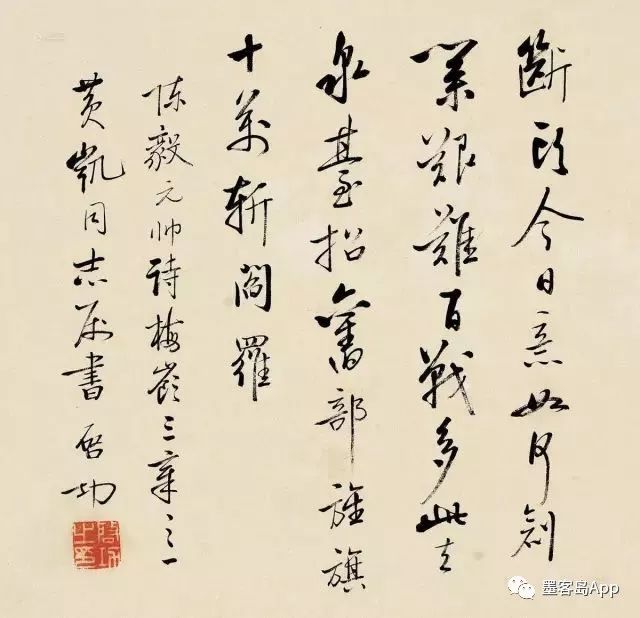 斷頭今日意如何創
業艱難百戰多此去
泉臺招舊部旌旗
十萬斬閻羅
陈毅元帅诗梅嶺三章之一
黄凯同志属書 啓功
啓功之印
墨客岛App